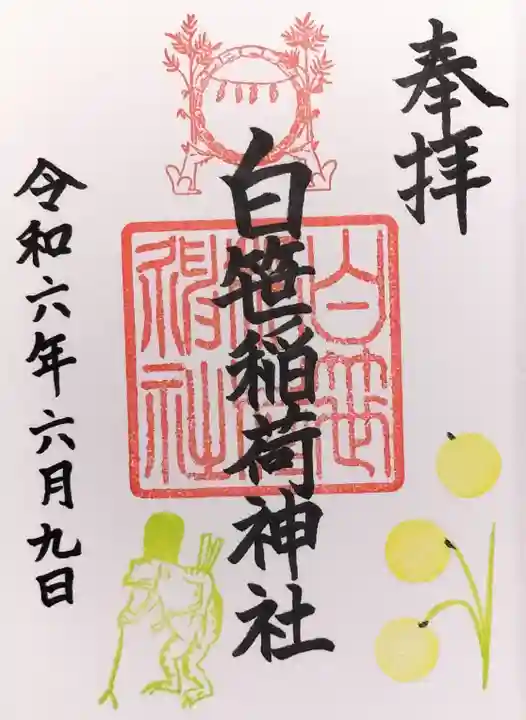 奉拝
白笹稲荷神社
白笹稲荷神社
令和六年六月九日